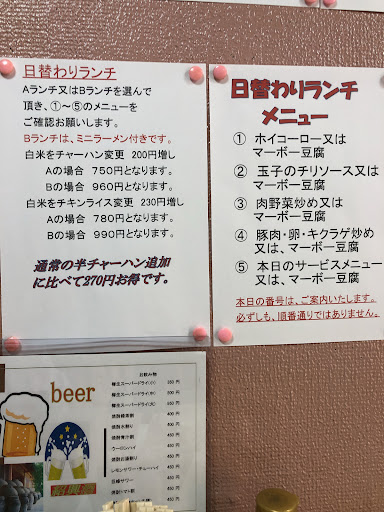 日替わりランチ
Aランチ又はBランチを選んで
頂き、①～⑤のメニューを
ご確認お願いします。
Bランチは、ミニラーメン付きです。
白米をチャーハン変更 200円増し
Aの場合 750円となります。
Bの場合 960円となります。
白米をチキンライス変更 230円増し
Aの場合 780円となります。
Bの場合 990円となります。
通常の半チャーハン追加
に比べて270円お得です。
日替わりランチ
メニュー
① ホイコーロー又は
マーボー豆腐
② 玉子のチリソース又は
マーボー豆腐
③ 肉野菜炒め又は
マーボー豆腐
④ 豚肉・卵・キクラゲ炒め
又は、マーボー豆腐
⑤ 本日のサービスメニュー
又は、マーボー豆腐
本日の番号は、ご案内いたします。
必ずしも、順番通りではありません。
beer
お飲み物
樽生スーパードライ(小)
樽生スーパードライ(中)
樽生スーパードライ(大)
焼酎水割り
ウーロンハイ
レモンサワー・チューハイ